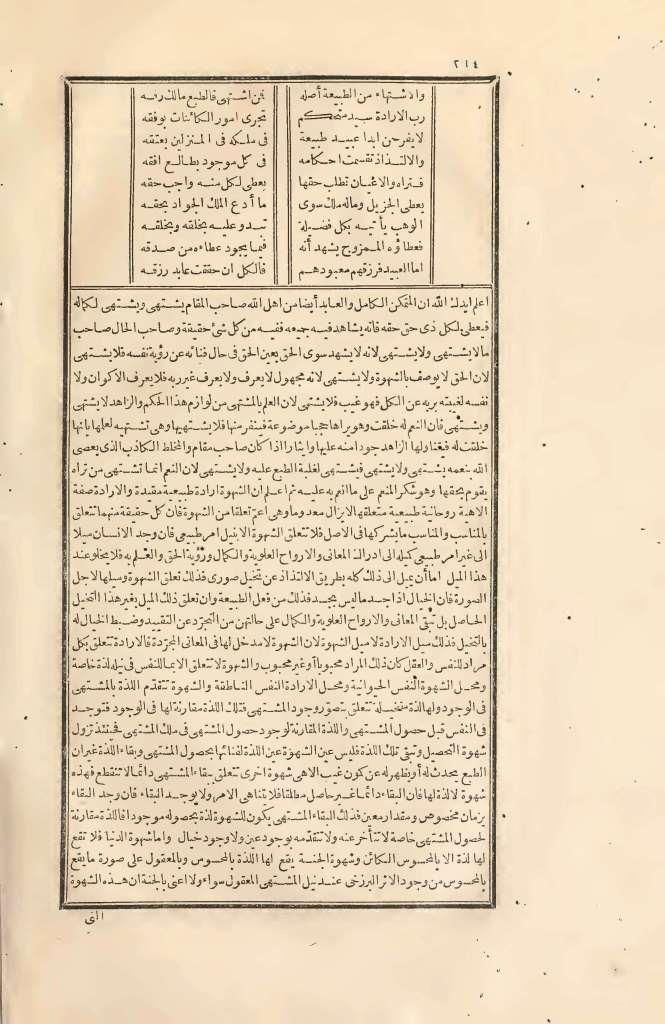 ٢١٤
والاشتهاء من الطبيعة أصله فمن اشتهى فالطبع مالك رقه
رب الارادة سيد متحكم تجرى امور الكائنات بوفقه
لا يفرحن ابدا عبيد طبيعة فى ملكه فى المنزلين بعتقه
والالتذاذ تقسمت احكامه فى كل موجود بطالع افقه
فتراه والاعيان تطلب حقها يعطى لكل منه واجب حقه
يعطى الجزيل وماله ملك سوى ما أدع الملك الجواد بحقه
الوهب يأتيه بكل فضيلة تبدو عليه بخلقه وبخلقه
فعطاؤه الممزوج يشهد أنه فيما يجود عطاءه من صدقه
اما العبيد فرزقهم معبودهم فالكل ان حققت عابد رزقه
اعلم ايدك الله ان المتمكن الكامل والعابد أيضا من اهل الله صاحب المقام يشتهى ويشتهى لكماله
فيعطى لكل ذى حق حقه فانه يشاهد فيه جمعه ففيه من كل شئ حقيقة وصاحب الحال صاحب
ما لا يشتهى ولا يشتهى لانه لا يشهد سوى الحق بعين الحق فى حال فنائه عن رؤية نفسه فلا يشتهى
لان الحق لا يوصف بالشهوة ولا يشتهى لانه مجهول لا يعرف ولا يعرف غير ربه فلا يعرف الاكوان ولا
نفسه لغيبته بربه عن الكل فهو غيب فلا يشتهى لان العلم بالمشتهى من لوازم هذا الحكم والزاهد لا يشتهى
ويشتهى فان النعم له خلقت وهو يراها حجبا موضوعة فينفر منها فلا يشتهيها وهى تشتهيه لعلمها بانها
خلقت له فيتناولها الزاهد جودا منه عليها وايثارا اذا كان صاحب مقام والمخلط الكاذب الذى يعصى
الله بنعمه يشتهى ولا يشتهى فيشتهى لغلبة الطبع عليه ولا يشتهى لان النعم انما تشتهى من تراه
يقوم بحقها وهو شكر المنعم على ما انعم به عليه ثم اعلم ان الشهوة ارادة طبيعية مقيدة والارادة صفة
الاهية روحانية طبيعية متعلقها لايزال معدوما وهى اعم تعلقا من الشهوة فان كل حقيقة منهما تتعلق
بالمناسب والمناسب ما يشركها فى الاصل فلا تتعلق الشهوة الا بنيل امر طبيعى فان وجد الانسان ميلا
الى غير امر طبيعى كميله الى ادراك المعانى والارواح العلوية والكمال ورؤية الحق والعلم به فلا يخلو عند
هذا الميل اما أن يميل الى ذلك كله بطريق الالتذاذ عن تخيل صورى فذلك تعلق الشهوة وميلها لاجل
الصورة فان الخيال اذا جسد ما ليس بجسد فذلك من فعل الطبيعة وان تعلق ذلك الميل بغير هذا التخيل
الحاصل بل تبقى المعانى والارواح العلوية والكمال على حالتهن من التجرد عن التقييد وضبط الخيال له
بالتخيل فذلك ميل الارادة لا ميل الشهوة لان الشهوة لا مدخل لها فى المعانى المجردة فالارادة تتعلق بكل
مراد للنفس والعقل كان ذلك المراد محبوبا أو غير محبوب والشهوة لا تتعلق الا بما للنفس فى نيله لذة خاصة
ومحل الشهوة النفس الحيوانية ومحل الارادة النفس الناطقة والشهوة تتقدم اللذة بالمشتهى
فى الوجود ولها لذة متخيلة تتعلق بتصور وجود المشتهى فتلك اللذة مقارنة لها فى الوجود فتوجد
فى النفس قبل حصول المشتهى واللذة المقارنة لوجود حصول المشتهى فى ملك المشتهى فحينئذ تزول
شهوة التحصيل وتبقى تلك اللذة فليس عين الشهوة عين اللذة لفنائها بحصول المشتهى وبقاء اللذة غير ان
الطبع يحدث له أو يظهر له عن كون غيب الاهى شهوة اخرى تتعلق ببقاء المشتهى دائما لا تنقطع فهذه
شهوة لا لذة لها فان البقاء دائما غير حاصل مطلقا فلا يتناهى الامر ولا يوجد البقاء فان وجد البقاء
بزمان مخصوص ومقدار معين فذلك البقاء المشتهى يكون للشهوة لذة بحصوله موجودا فاللذة مقارنة
لحصول المشتهى خاصة لا تتأخر عنه ولا تتقدمه بوجود عين ولا وجود خيال واما شهوة الدنيا فلا تقع
لها لذة الا بالمحسوس الكائن وشهوة الجنة يقع لها اللذة بالمحسوس وبالمعقول على صورة ما يقع
بالمحسوس من وجود الاثر البرزخى عند نيل المشتهى المعقول سواء ولا اعنى بالجنة ان هذه الشهوة
التى